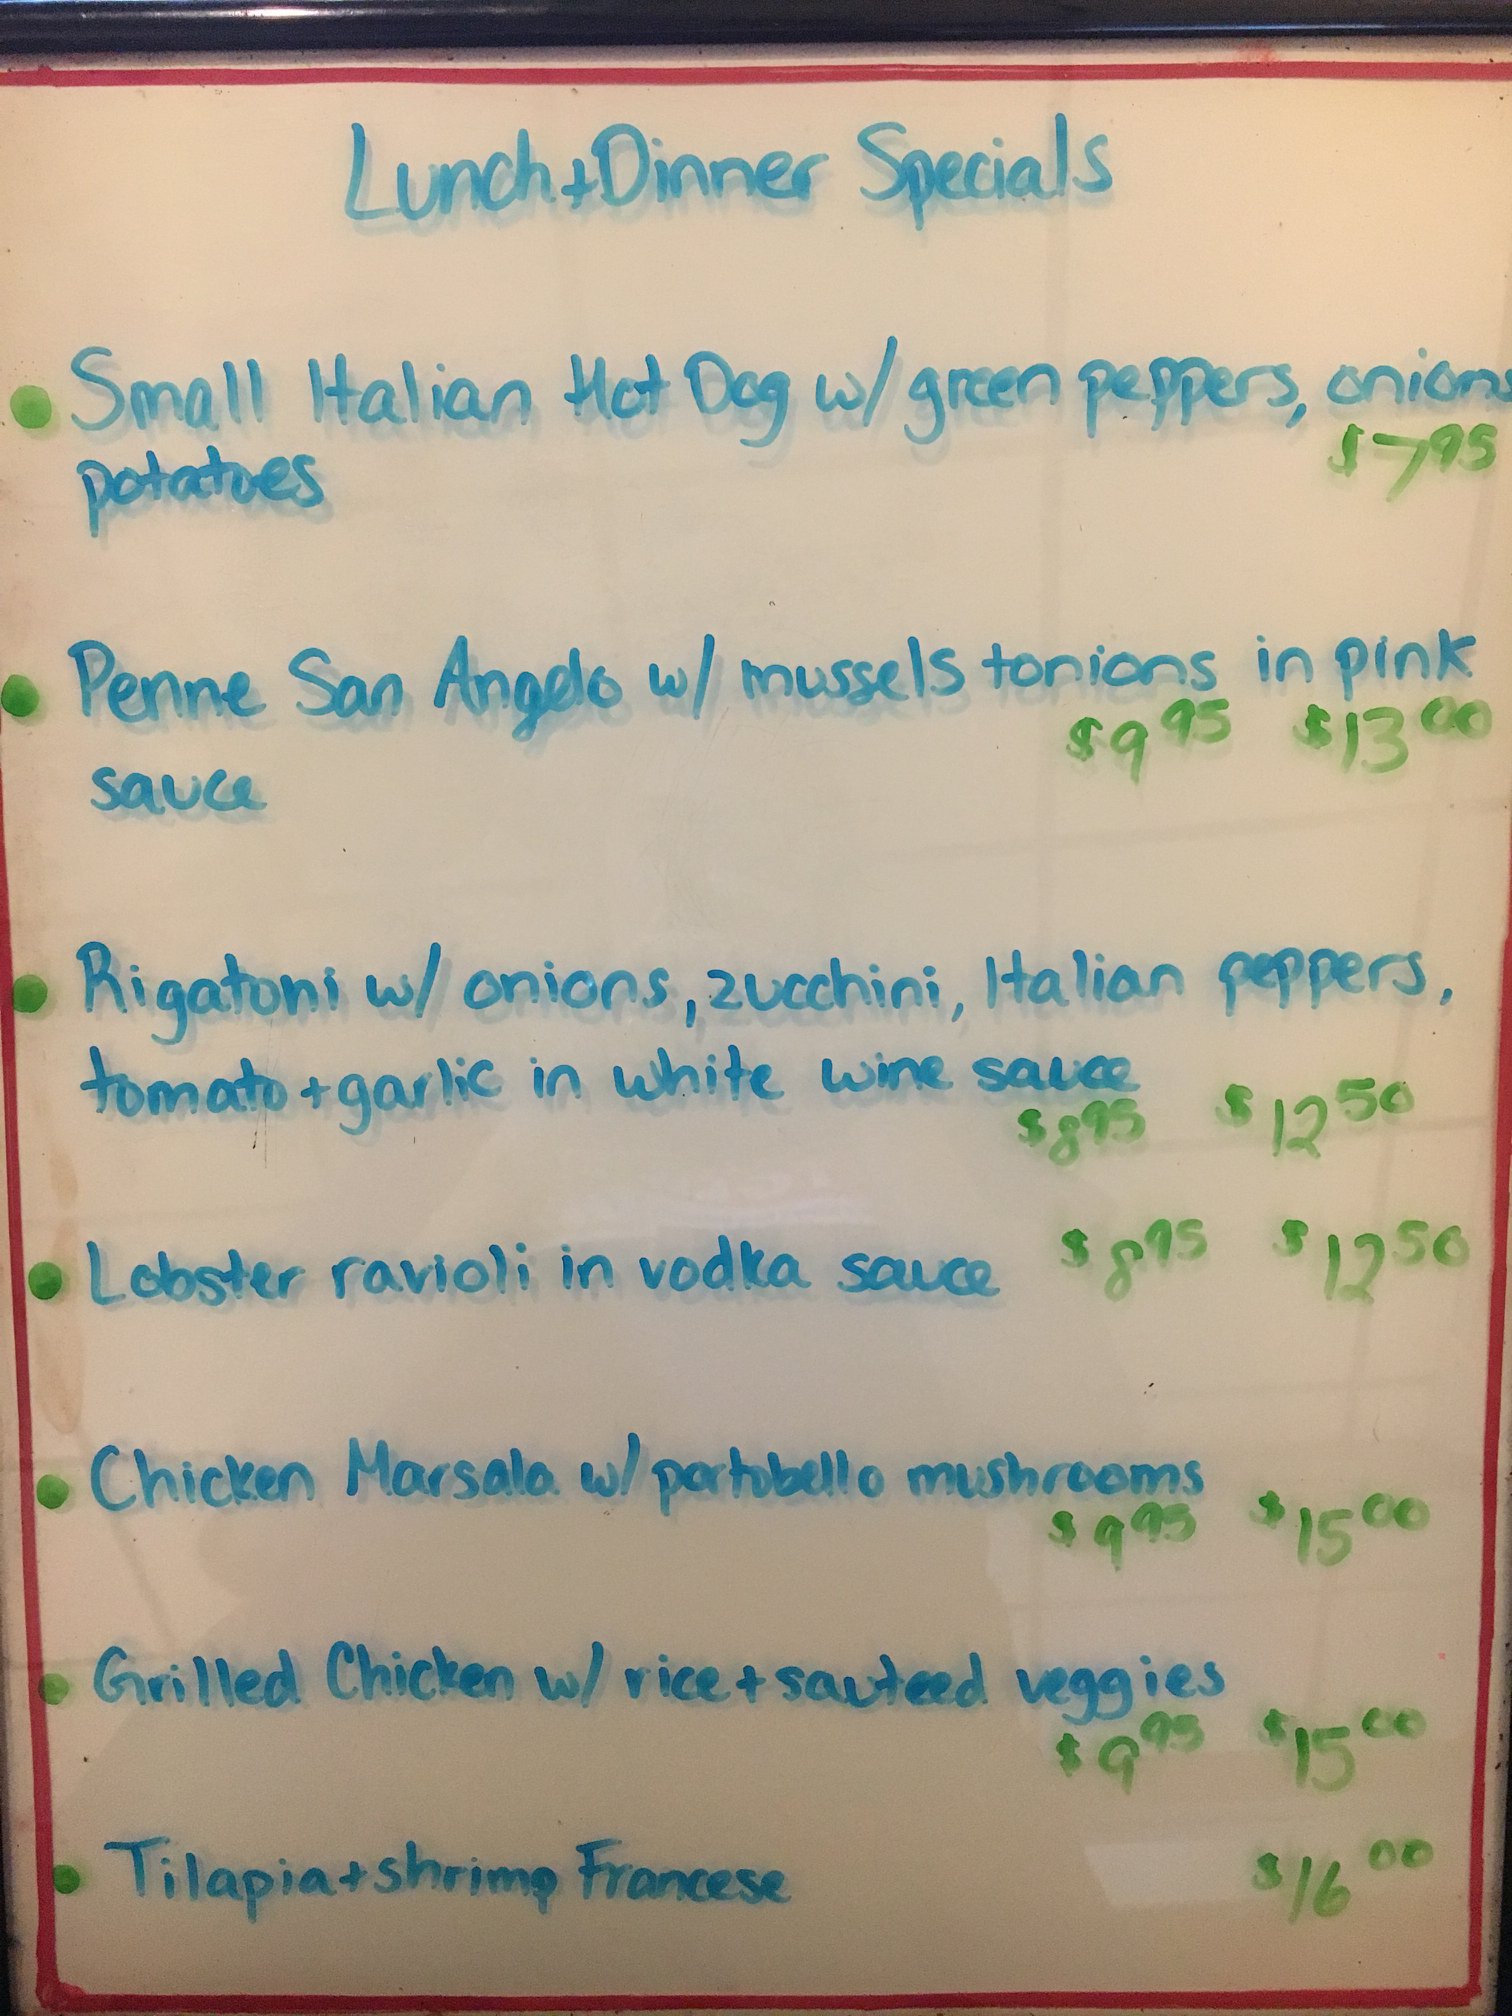 Lunch + Dinner Specials
Small Italian Hot Dog w/ green peppers, onions
$7 95
potatoes
Penne San Angelo w/ mussels + onions in pink
$9 95 $13 00
sauce
Rigatoni w/ onions, zucchini, Italian peppers,
tomato + garlic in white wine sauce
$8 95 $12 50
Lobster ravioli in vodka sauce $8 95 $12 50
Chicken Marsala w/ portobello mushrooms
$9 95 $15 00
Grilled Chicken w/ rice + sauteed veggies
$9 95 $15 00
Tilapia + shrimp Francese $16 00